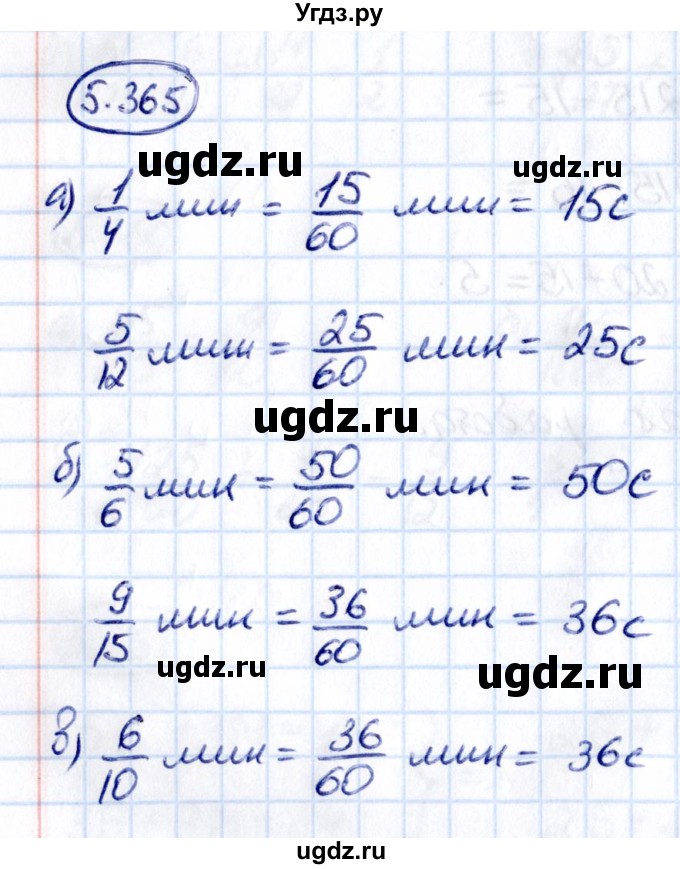 Угдз.ру
5.365
ugdz.ru ugdz.ru
а) 1/4 мин = 15/60 мин = 15с
5/12 мин = 25/60 мин = 25с
ugdz.ru
б) 5/6 мин = 50/60 мин = 50с
9/15 мин = 36/60 мин = 36с
ugdz.ru ugdz.ru
в) 6/10 мин = 36/60 мин = 36с
ugdz.ru